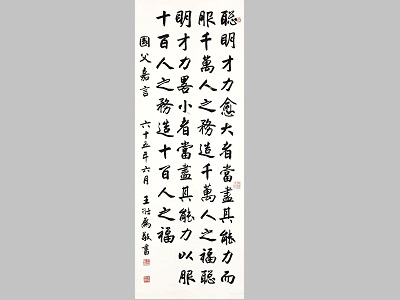 聰明才力愈大者當盡其能力而
服千萬人之務造千萬人之福聰
明才力畧小者當盡其能力以服
十百人之務造十百人之福
國父嘉言 六十五年六月 王壯為敬書